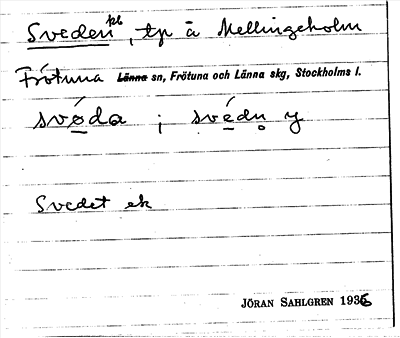 Sveden pl, tp å Mellingeholm
Frötuna Länna sn, Frötuna och Länna skg, Stockholms l.
svǿda ; svédn̥ y
Svedet ek
JÖRAN SAHLGREN 1936